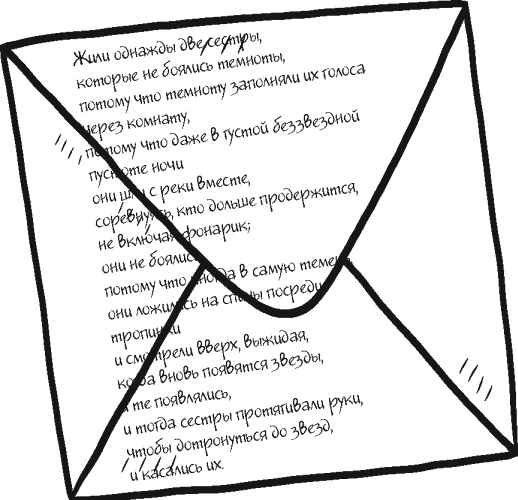 Жили однажды две сестры,
которые не боялись темноты,
потому что темноту заполняли их голоса
через комнату,
потому что даже в густой беззвездной
пустоте ночи
они шли с реки вместе,
соревнуясь, кто дольше продержится,
не включая фонарик;
они не боялись
потому что иногда в самую темень
они ложились на спины посреди
тропинки
и смотрели вверх, выжидая,
когда вновь появятся звезды,
и те появлялись,
и тогда сестры протягивали руки,
чтобы дотронуться до звезд,
и касались их.